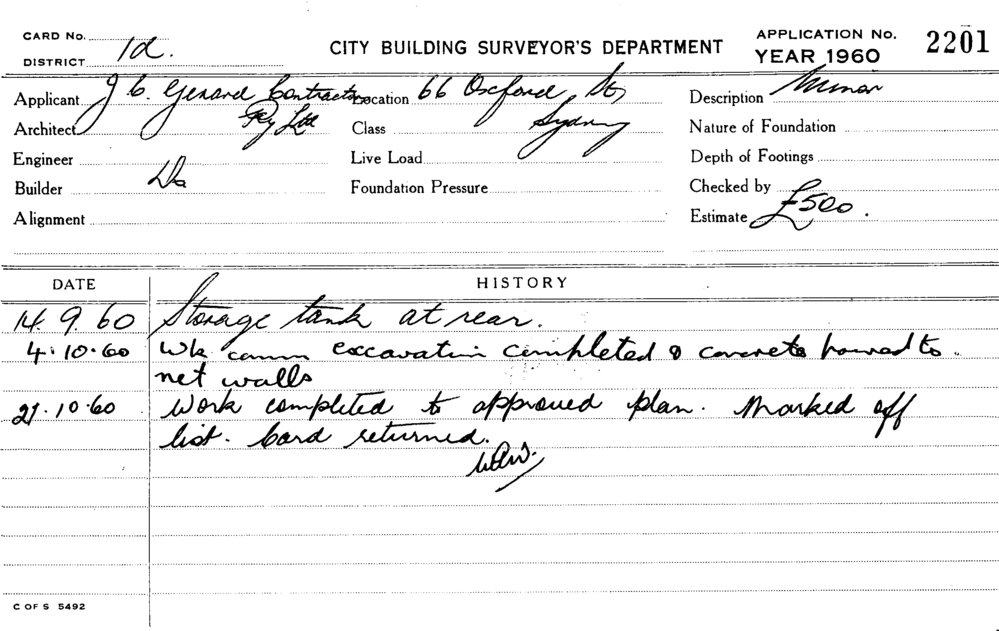 CARD No.
CITY BUILDING SURVEYOR'S DEPARTMENT
APPLICATION No. 2201
DISTRICT 1d.
YEAR 1960
Applicant J C. Gerard Contractors Location 66 Oxford St, Description Minor
Architect Pty Ltd Class Sydney Nature of Foundation
Engineer Live Load Depth of Footings
Builder Do Foundation Pressure Checked by
Alignment Estimate £500.
DATE HISTORY
14. 9. 60 Storage tank at rear.
4.10.60 Wk comm excavation completed & concrete poured to
net walls
27.10.60 Work completed to approved plan. Marked off
list. Card returned.
C OF S 5492